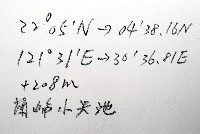 22°05'N → 04'38.16N
121°31'E → 30'36.81E
+208m
蘭嶼小天池